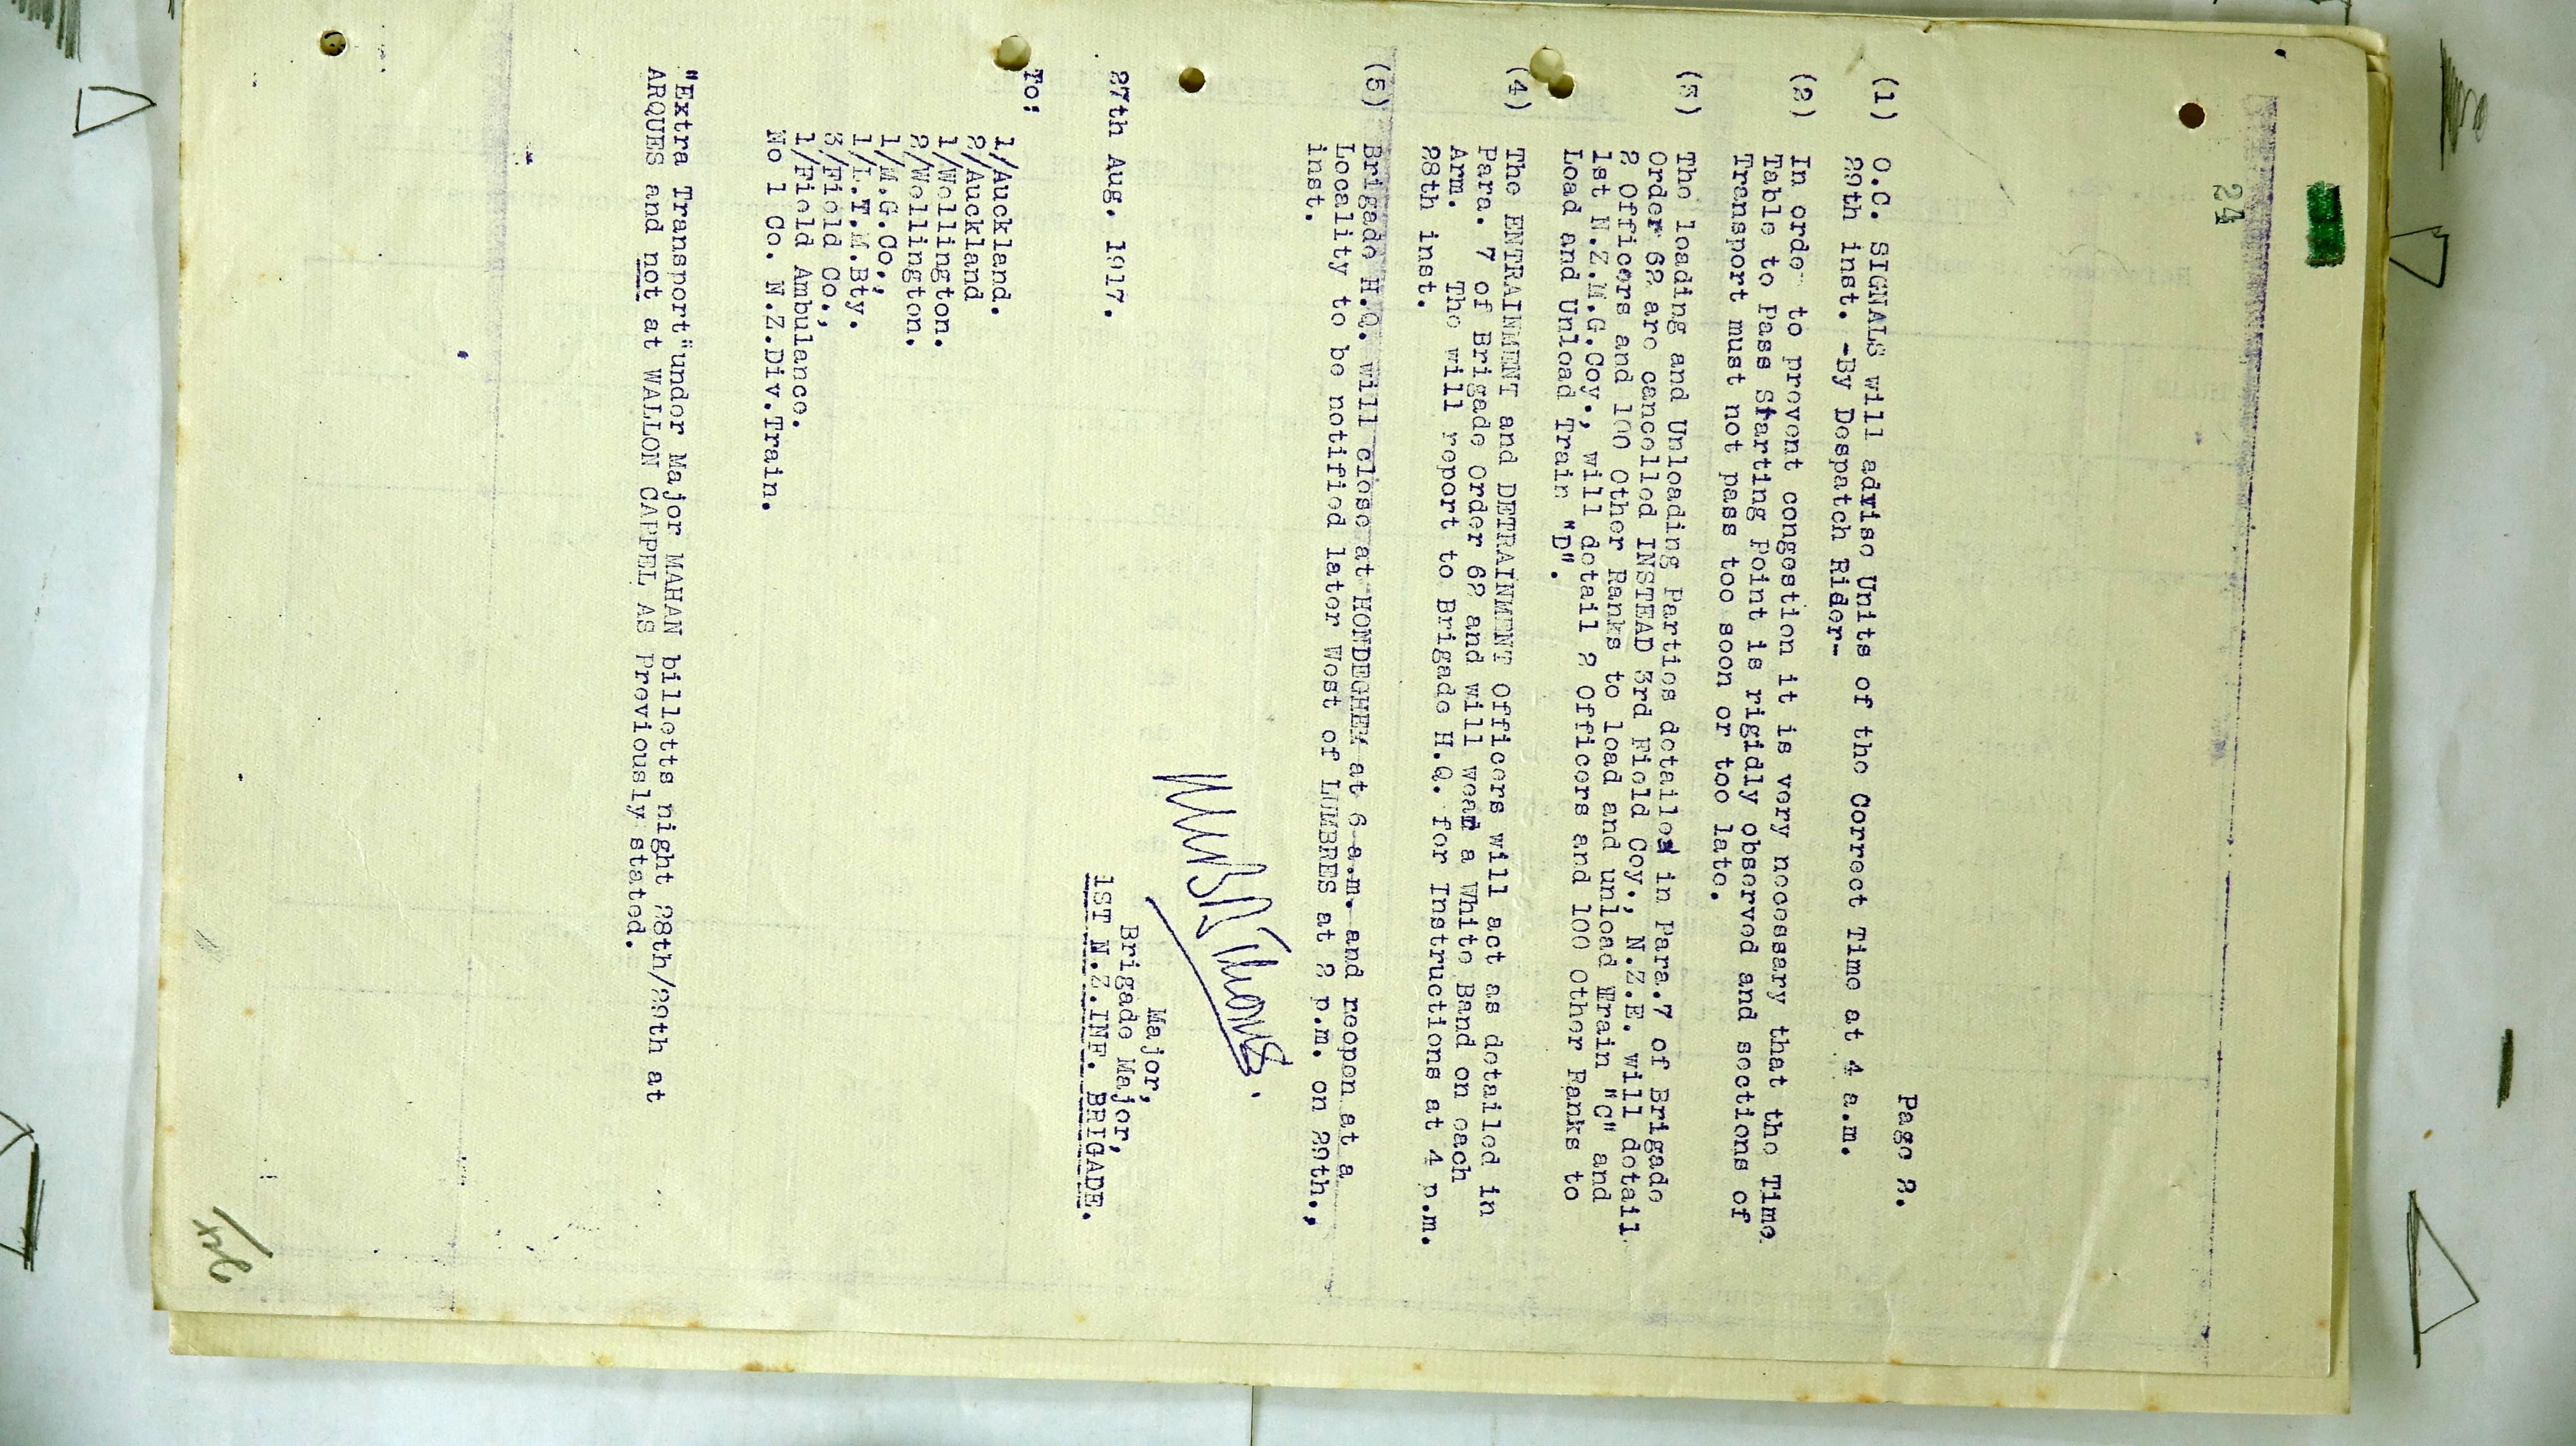 24
Page 2.
(1) O.C. SIGNALS will advise Units of the Correct Time at 4 a.m.
29th inst. -By Despatch Rider-
(2) In orde to prevent congestion it is very necessary that the Time
Table to Pass Starting Point is rigidly observed and sections of
Transport must not pass too soon or too late.
(3) The loading and Unloading Parties detailed in Para.7 of Brigade
Order 62 are cancelled INSTEAD 3rd Field Coy., N.Z.E. will detail
2 Officers and 100 Other Ranks to load and unload Train "C" and
1st N.Z.M.G.Coy., will detail 2 Officers and 100 Other Ranks to
Load and Unload Train "D".
(4) The ENTRAINMENT and DETRAINMENT Officers will act as detailed in
Para. 7 of Brigade Order 62 and will wear a White Band on each
Arm. The will report to Brigade H.Q. for Instructions at 4 p.m.
28th inst.
(5) Brigade H.Q. will close at HONDEGHEM at 6 a.m. and reopen at a
Locality to be notified later West of LUMBRES at 2 p.m. on 29th.,
inst.
Major,
Brigade Major,
27th Aug. 1917.
1ST N.Z.INF. BRIGADE.
To:
1/Auckland.
2/Auckland
1/Wellington.
2/Wellington.
1/M.G.Co.,
1/L.T.M.Bty.
3/Field Co.,
1/Field Ambulance.
No 1 Co. N.Z.Div.Train.
"Extra Transport"under Major MAHAN billetts night 28th/29th at
ARQUES and not at WALLON CAPPEL AS Previously stated.